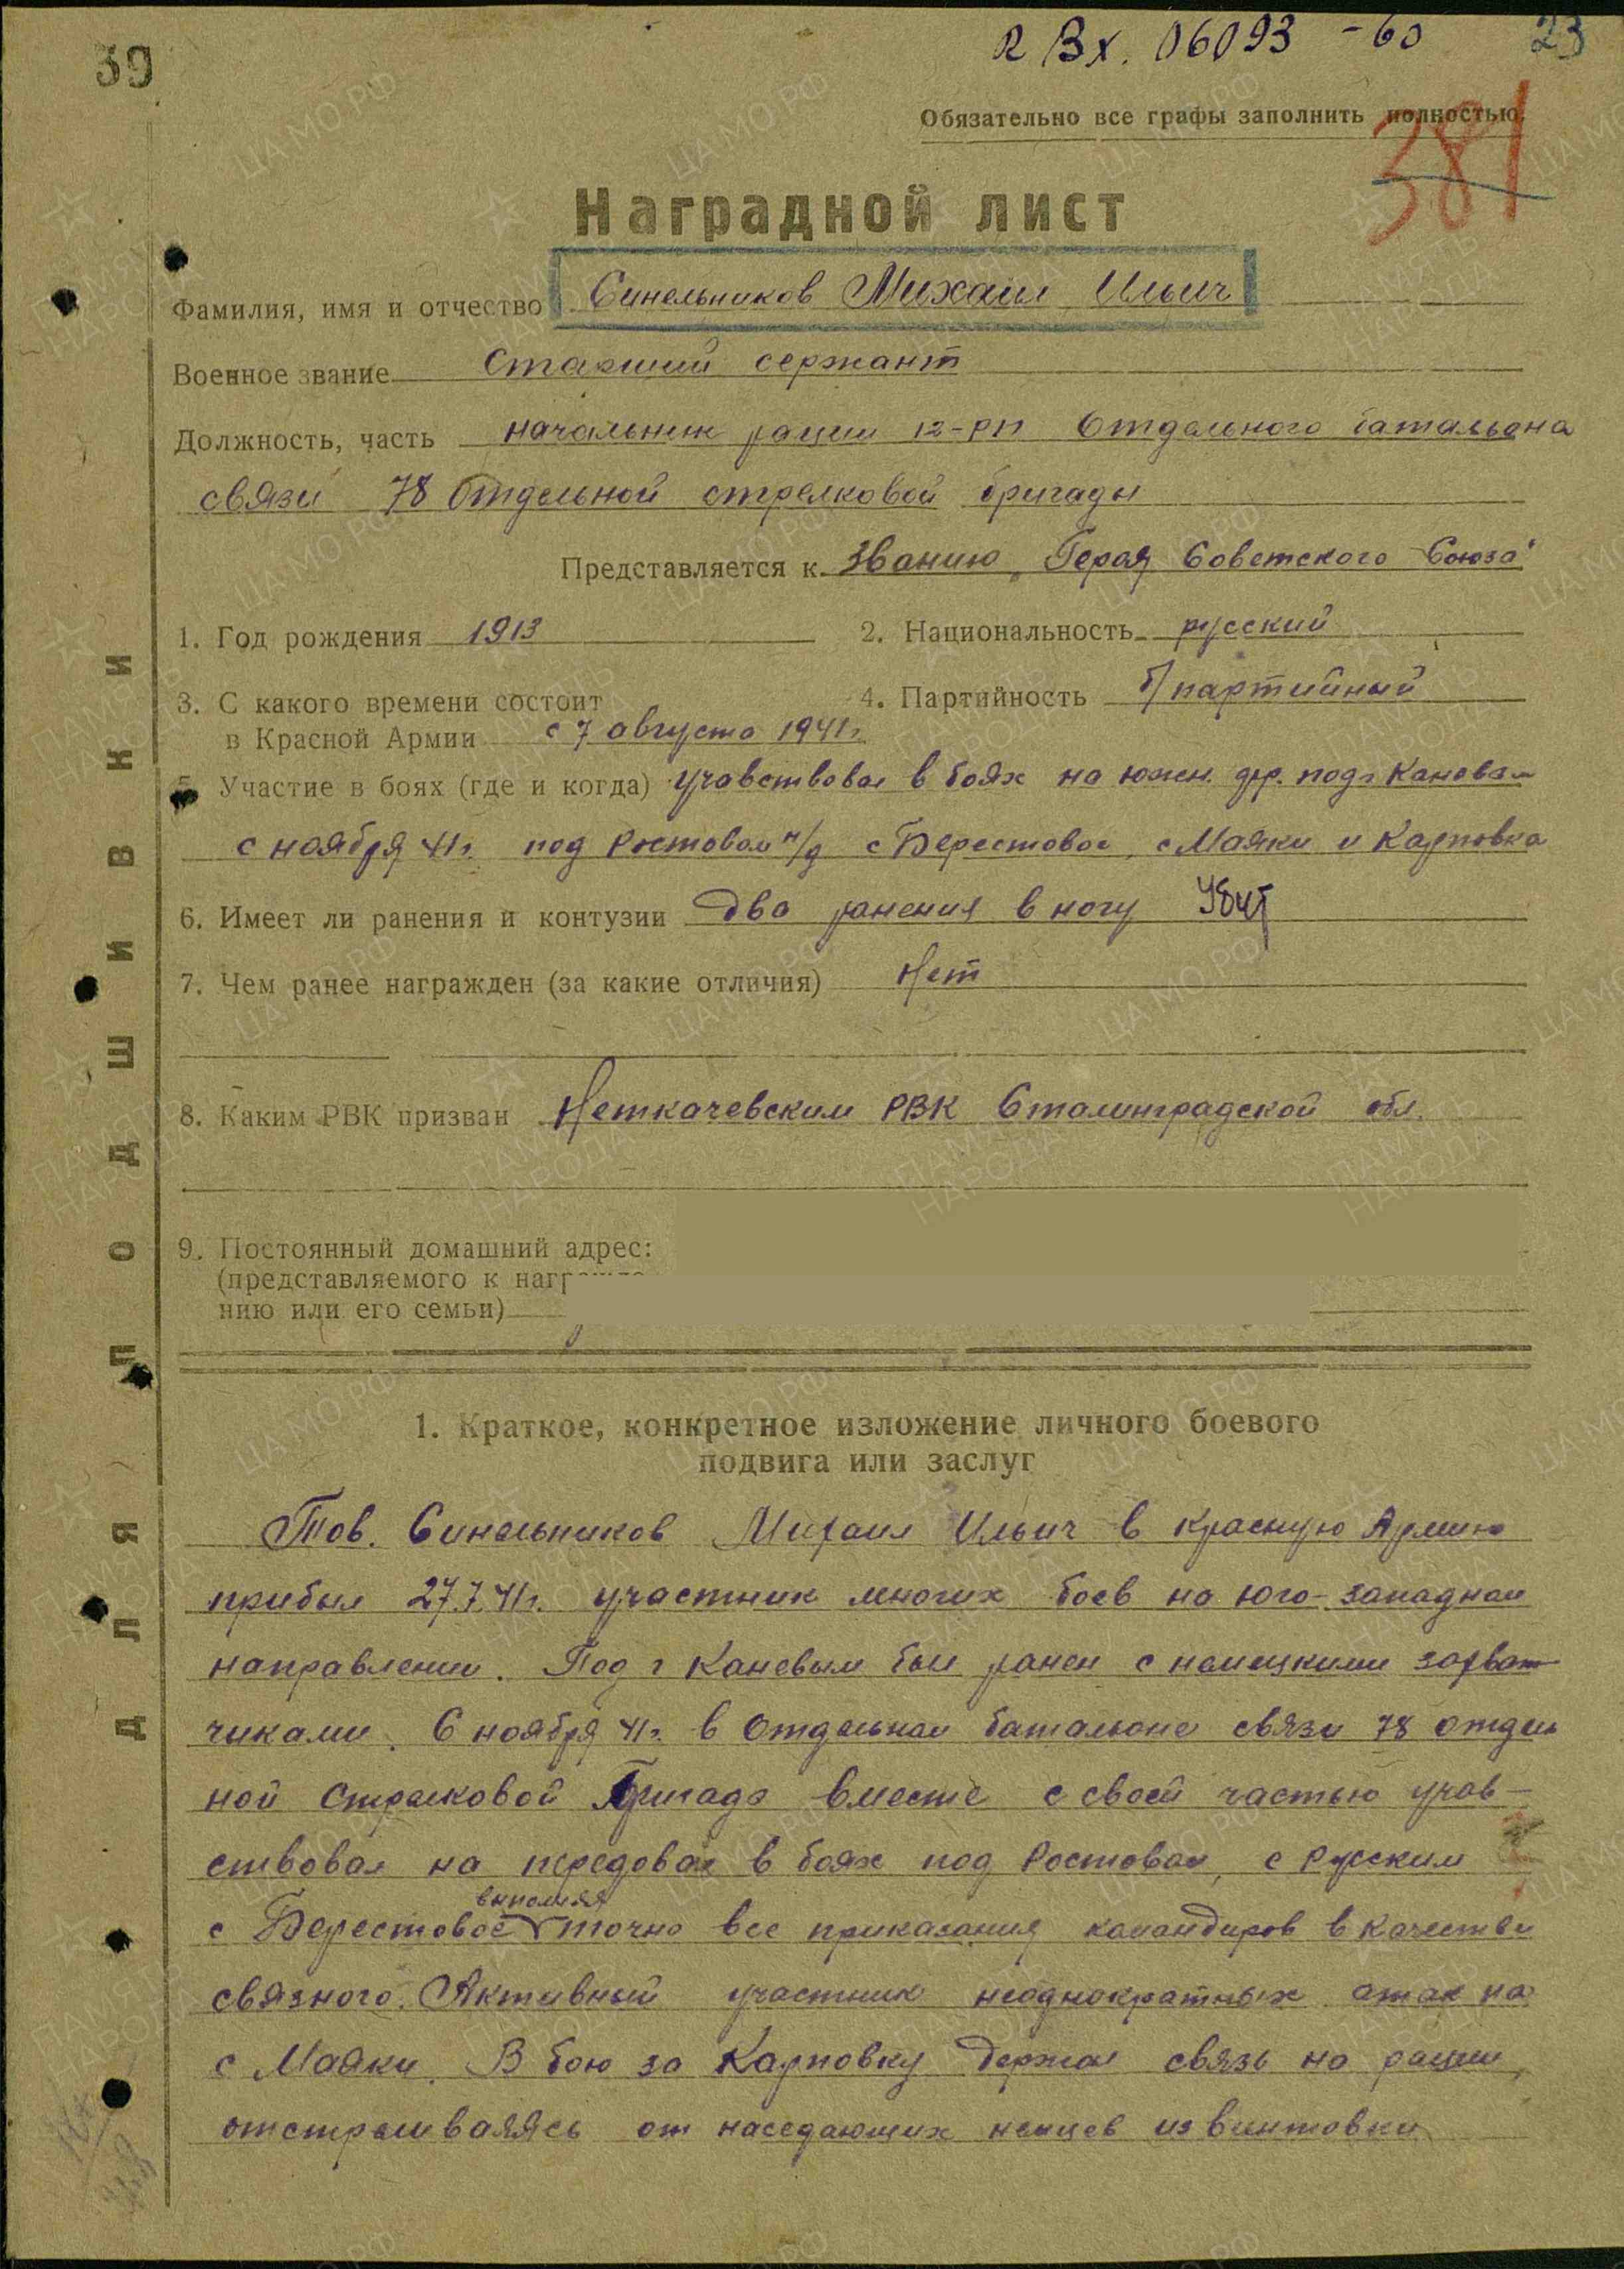 39
Вх. 06093 - 60
23
Обязательно все графы заполнить полностью.
381
Наградной лист
Фамилия, имя и отчество Синельников Михаил Ильич
Военное звание Старший сержант
Должность, часть начальник рации 12-РП Отдельного батальона
связи 78 Отдельной стрелковой бригады
Представляется к Званию „Героя Советского Союза"
1. Год рождения 1913
2. Национальность русский
3. С какого времени состоит
в Красной Армии с 7 августа 1941 г.
4. Партийность б/партийный
5. Участие в боях (где и когда) учавствовал в боях на южн. фр. под г Каневом
с ноября 41 г. под Ростовом н/д с Берестовое, с Маяки и Карповка
6. Имеет ли ранения и контузии два ранения в ногу Убит
7. Чем ранее награжден (за какие отличия) Нет
8. Каким РВК призван Неткачевским РВК Сталинградской обл.
9. Постоянный домашний адрес:
(представляемого к
нию или его семьи)
ДЛЯ ПОДШИВКИ
1. Краткое, конкретное изложение личного боевого
подвига или заслуг
Тов. Синельников Михаил Ильич в Красную Армию
прибыл 27.7.41г. участник многих боев на юго-западном
направлении. Под г Каневым был ранен с немецкими захват-
чиками. С ноября 41 г. в Отдельном батальоне связи 78 отдель
ной Стрелковой Бригаде вместе с своей частью учав-
ствовал на передовой в боях под Ростовом, с Русским
выполняя
с Берестовое точно все приказания командиров в качестве
связного. Активный участник неоднократных атак на
с Маяки. В бою за Карповку держал связь на рации,
отстреливаяясь от наседающих немцев из винтовки